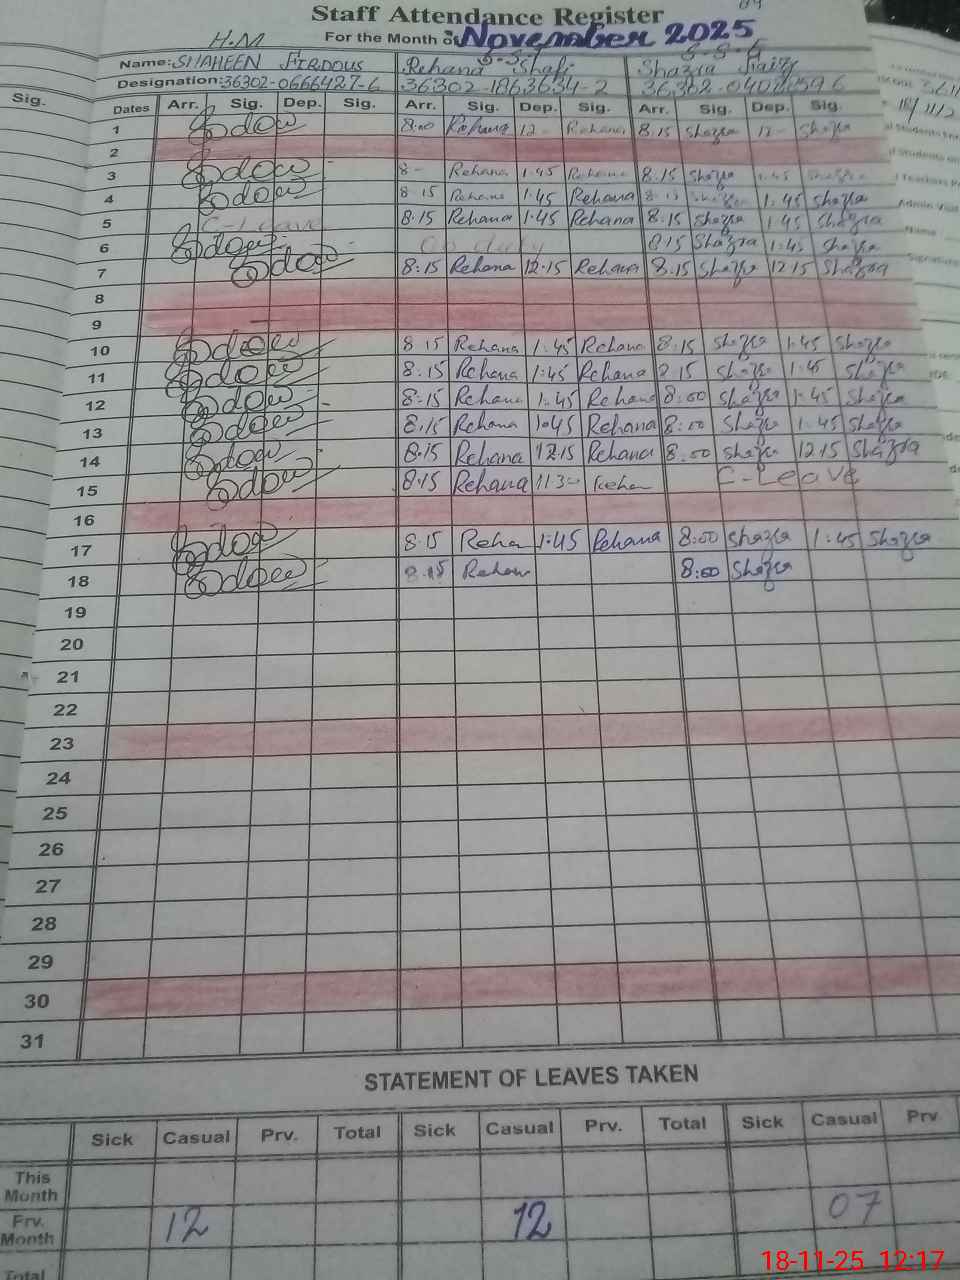 Staff Attendance Register
H.M
For the Month of November 2025
Name: SHAHEEN FIRDOUS Rehana Shafi Shazra
Designation: 36302-0666427-6 36302-1863634-2
Sig. Dates Arr. Sig. Dep. Sig. Arr. Sig. Dep. Sig. Arr. Sig. Dep. Sig.
1 8:00 Rehana 12 Rehana 8.15 Shazra 12 Shazra
2
3 8 Rehana 1.45 Rehana 8.15 Shazra 1.45 Shazra
4 8 15 Rehana 1.45 Rehana 8.15 Shazra 1.45 Shazra
5 C-Leave 8.15 Rehana 1.45 Rehana 8.15 Shazra 1.45 Shazra
6 On duty 8.15 Shazra 1:45 Shazra
7 8:15 Rehana 12.15 Rehana 8.15 Shazra 12 15 Shazra
8
9
10 8 15 Rehana 1.45 Rehana 8.15 Shazra 1.45 Shazra
11 8.15 Rehana 1.45 Rehana 8.15 Shazra 1.45 Shazra
12 8:15 Rehana 1.45 Rehana 8:00 Shazra 1.45 Shazra
13 8.15 Rehana 1.45 Rehana 8:00 Shazra 1.45 Shazra
14 8.15 Rehana 12.15 Rehana 8:00 Shazra 12.15 Shazra
15 8.15 Rehana 11 30 Rehan C-Leave
16
17 8 15 Reha 1:45 Rehana 8:00 Shazra 1:45 Shazra
18 8.15 Rehan 8:00 Shazra
19
20
21
22
23
24
25
26
27
28
29
30
31
STATEMENT OF LEAVES TAKEN
Sick Casual Prv. Total Sick Casual Prv. Total Sick Casual Prv
This Month
Prv. Month 12 12 07
Total
18-11-25 12:17